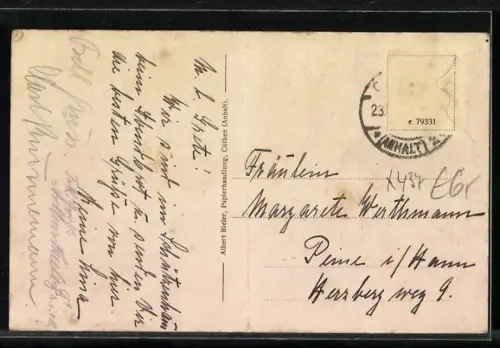 M. l. Grete!
Wir sind im Schützenhaus
beim Abendbrot u. senden Dir
die besten Grüße von hier.
Deine Lina
Albert Bieler, Papierhandlung, Cöthen (Anhalt).
23.
(ANHALT)
c 79331
x434
Fräulein
Margarete Werthmann
Peine i/Hann
Herzberg weg 9.